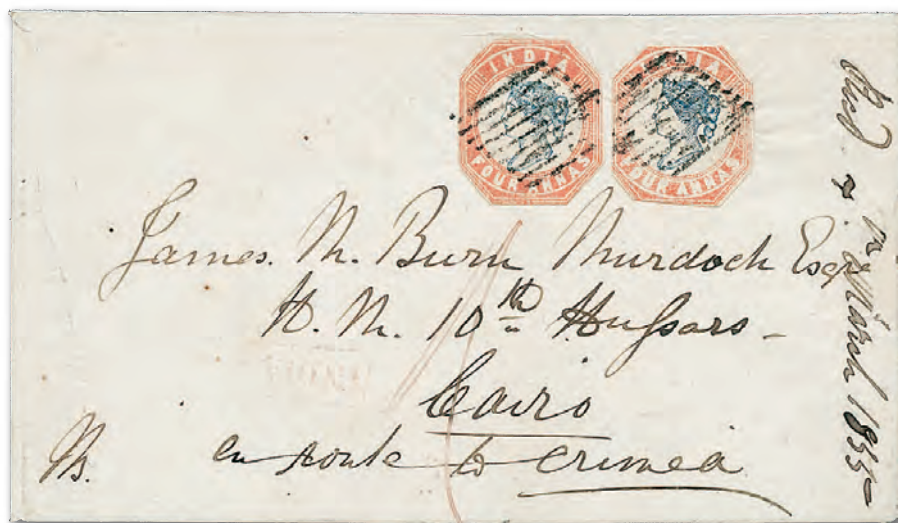 INDIA
FOUR ANNAS
INDIA
FOUR ANNAS
James. M. Burn Murdoch Esqr
H. M. 10th Hussars
Cairo
en route to Crimea
March 1855